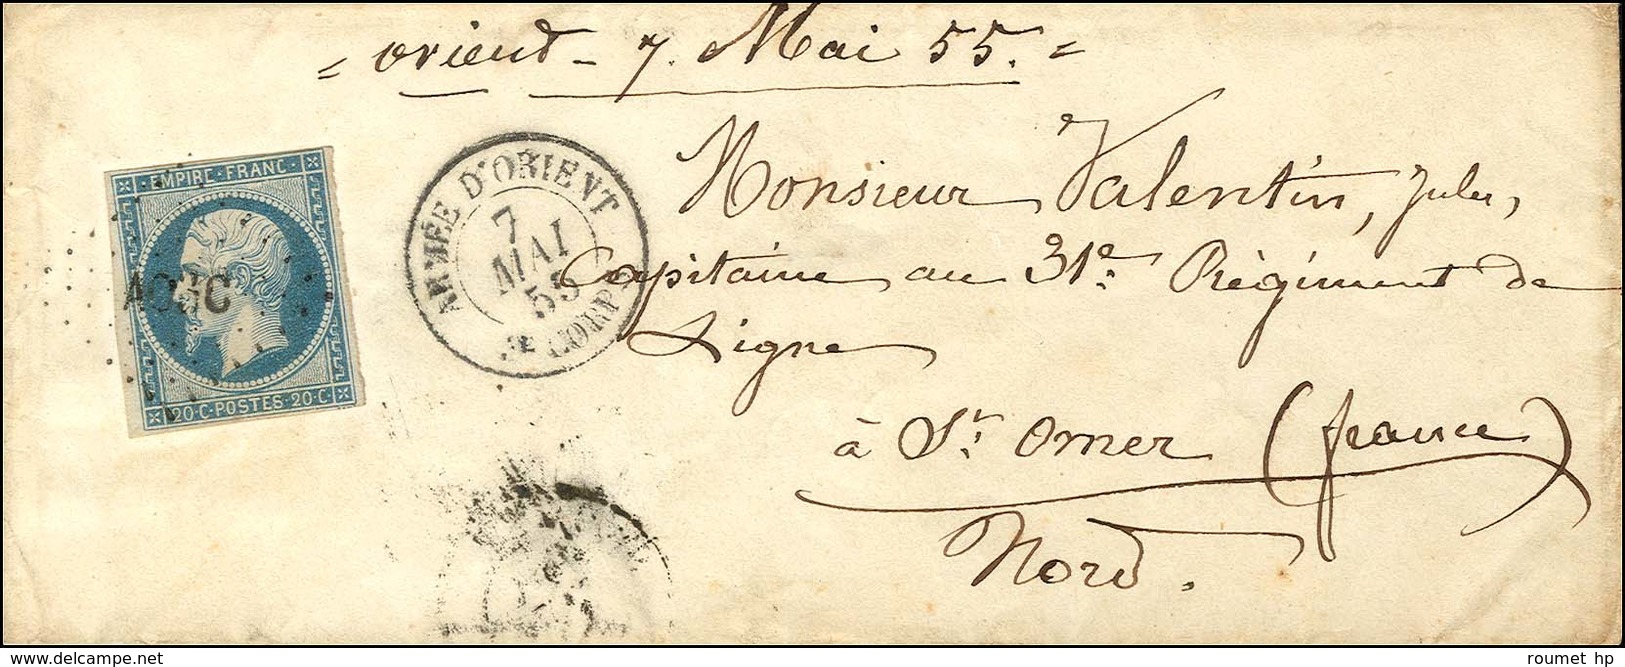 = orient - 7. Mai 55. =
EMPIRE · FRANC ·
20 · C · POSTES · 20 · C ·
ARMÉE D'ORIENT
7
MAI
55
CORPS
Monsieur Valentin, Jules,
Capitaine au 31e Régiment de
Ligne
à St. Omer (france)
Nord.
roumet hp